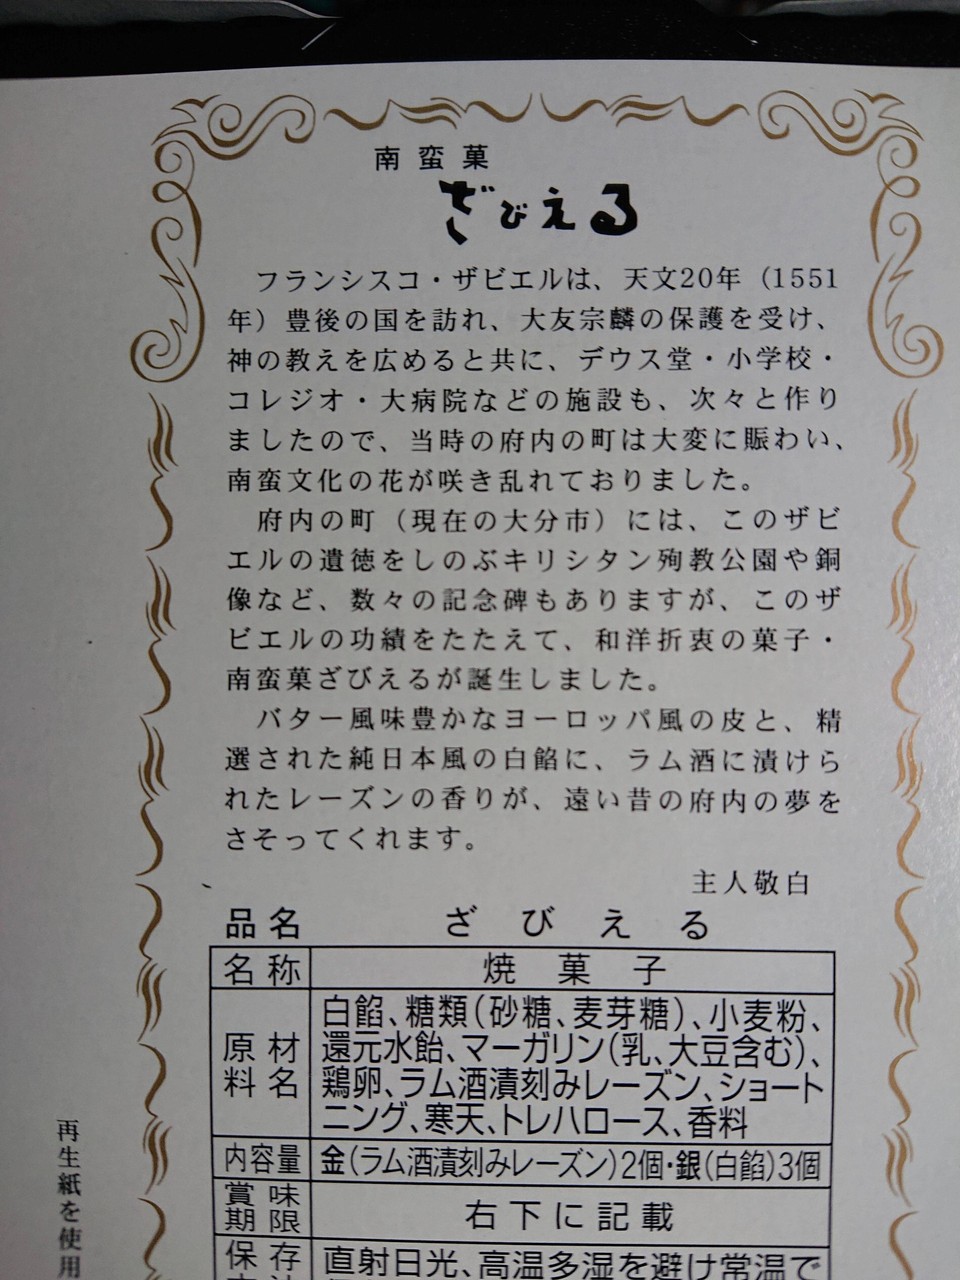 南蛮菓
ざびえる
フランシスコ・ザビエルは、天文20年（1551
年）豊後の国を訪れ、大友宗麟の保護を受け、
神の教えを広めると共に、デウス堂・小学校・
コレジオ・大病院などの施設も、次々と作り
ましたので、当時の府内の町は大変に賑わい、
南蛮文化の花が咲き乱れておりました。
府内の町（現在の大分市）には、このザビ
エルの遺徳をしのぶキリシタン殉教公園や銅
像など、数々の記念碑もありますが、このザ
ビエルの功績をたたえて、和洋折衷の菓子・
南蛮菓ざびえるが誕生しました。
バター風味豊かなヨーロッパ風の皮と、精
選された純日本風の白餡に、ラム酒に漬けら
れたレーズンの香りが、遠い昔の府内の夢を
さそってくれます。
主人敬白
品名 ざびえる
名称 焼菓子
原材料名
白餡、糖類（砂糖、麦芽糖）、小麦粉、
還元水飴、マーガリン（乳、大豆含む）、
鶏卵、ラム酒漬刻みレーズン、ショート
ニング、寒天、トレハロース、香料
内容量 金（ラム酒漬刻みレーズン）2個・銀（白餡）3個
賞味期限 右下に記載
保存
直射日光、高温多湿を避け常温で
再生紙を使用